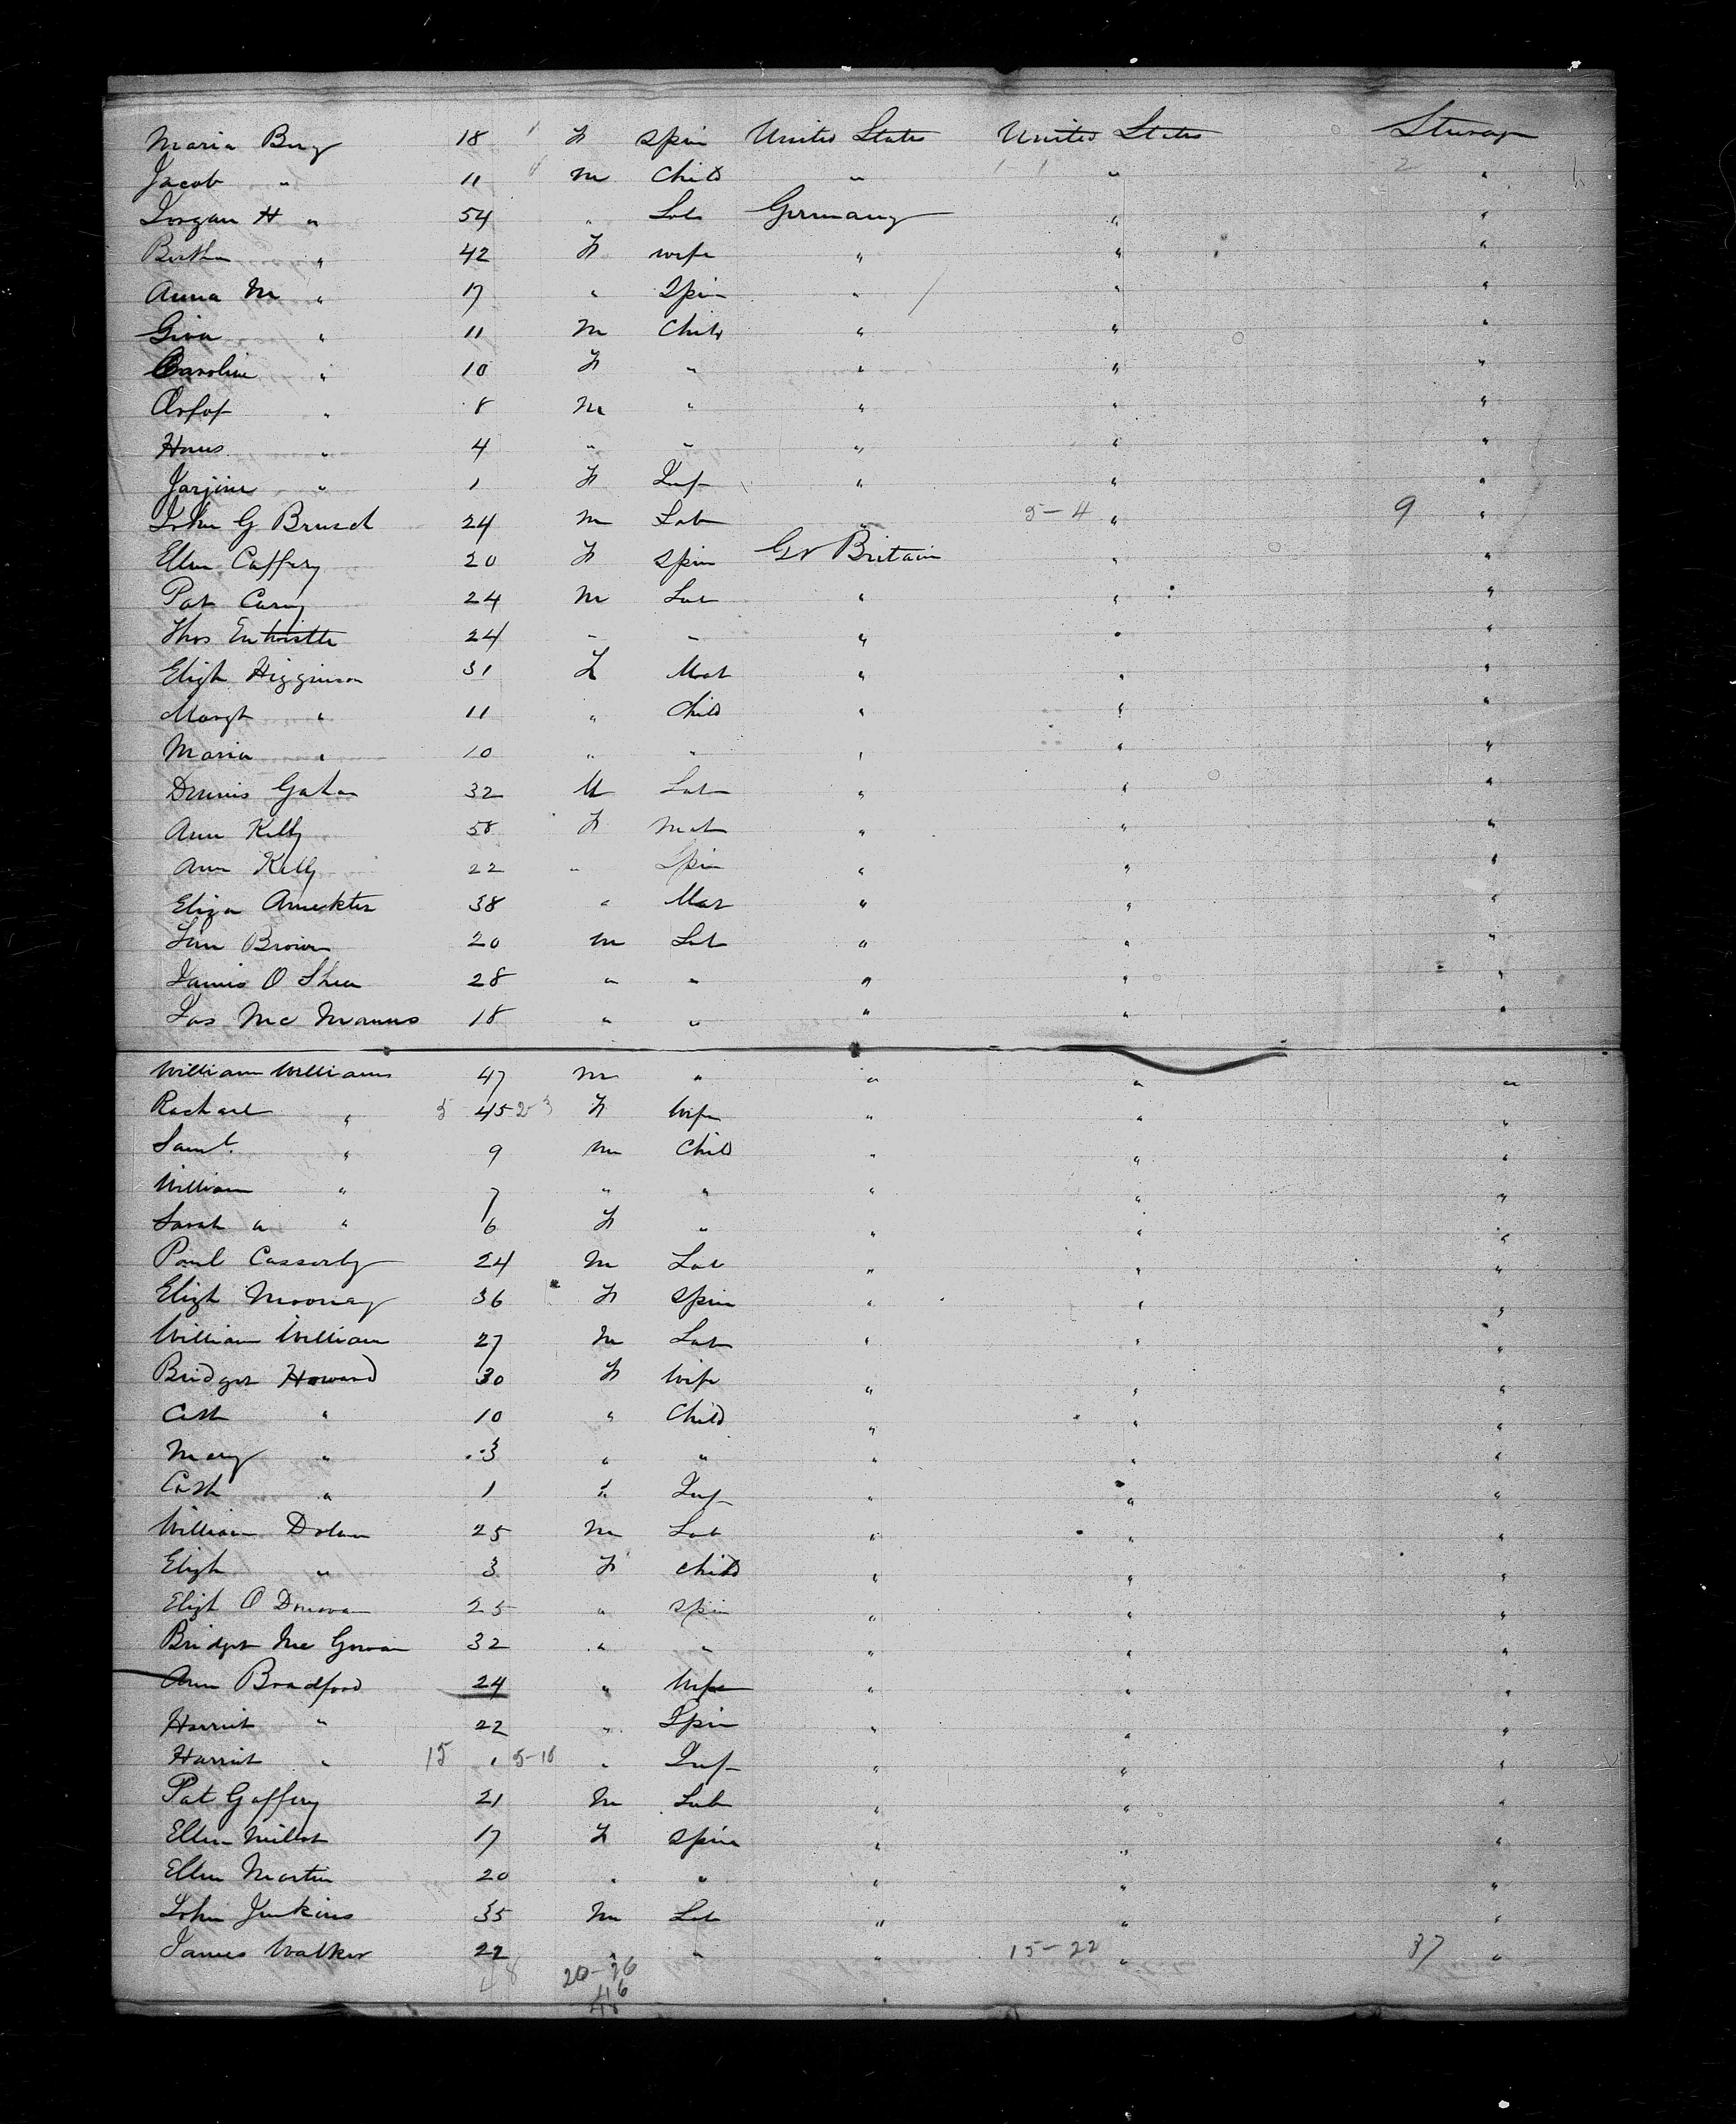 Maria Berg 18 F Spin United States United States Steerage
Jacob " 11 M Child " " 2 "
Jorgan H " 54 " Lab Germany " "
Bertha " 42 F wife " " "
Anna M " 17 " Spin " " "
11 M Child " " "
Caroline " 10 F " " " "
8 M " " " "
Hans " 4 " " " " "
1 F Inf " " "
John G Brusch 24 M Lab " 5-4 " 9 "
Ellen Caffery 20 F Spin Gt Britain " "
Pat Carey 24 M Lab " " "
Thos Entwistle 24 " " " " "
Elizh Higginson 31 F Mat " " "
Margt " 11 " Child " " "
Maria " 10 " " " " "
Dennis Gahan 32 M Lab " " "
Ann Kelly 58 F Mat " " "
Ann Kelly 22 " Spin " " "
Eliza 38 " Mat " " "
Brown 20 M Lab " " "
James O Shea 28 " " " " "
Jas Mc Manus 18 " " " " "
William Williams 47 M " " " "
Rachael " 45 F Wife " " "
Saml. " 9 M Child " " "
William " 7 " " " " "
Sarah a " 6 F " " " "
Paul Casserly 24 M Lab " " "
Elizh Mooney 36 F Spin " " "
William William 27 M Lab " " "
Bridget Howard 30 F Wife " " "
Cath " 10 " Child " " "
Mary " 3 " " " " "
Cath " 1 " Inf " " "
William Dolan 25 M Lab " " "
Elizh " 3 F Child " " "
Elizh O Donovan 25 " Spin " " "
Bridget Mc Gowan 32 " " " " "
Ann Bradford 24 " Wife " " "
Harriet " 22 " Spin " " "
Harriet " 15 1 5-18 " Inf " " "
Pat Gaffery 21 M Lab " " "
Ellen Millot 17 F Spin " " "
Ellen Martin 20 " " " " "
John Jenkins 35 M Lab " " "
James Walker 22 " " " 15-22 " 37 "
48 20-26
46